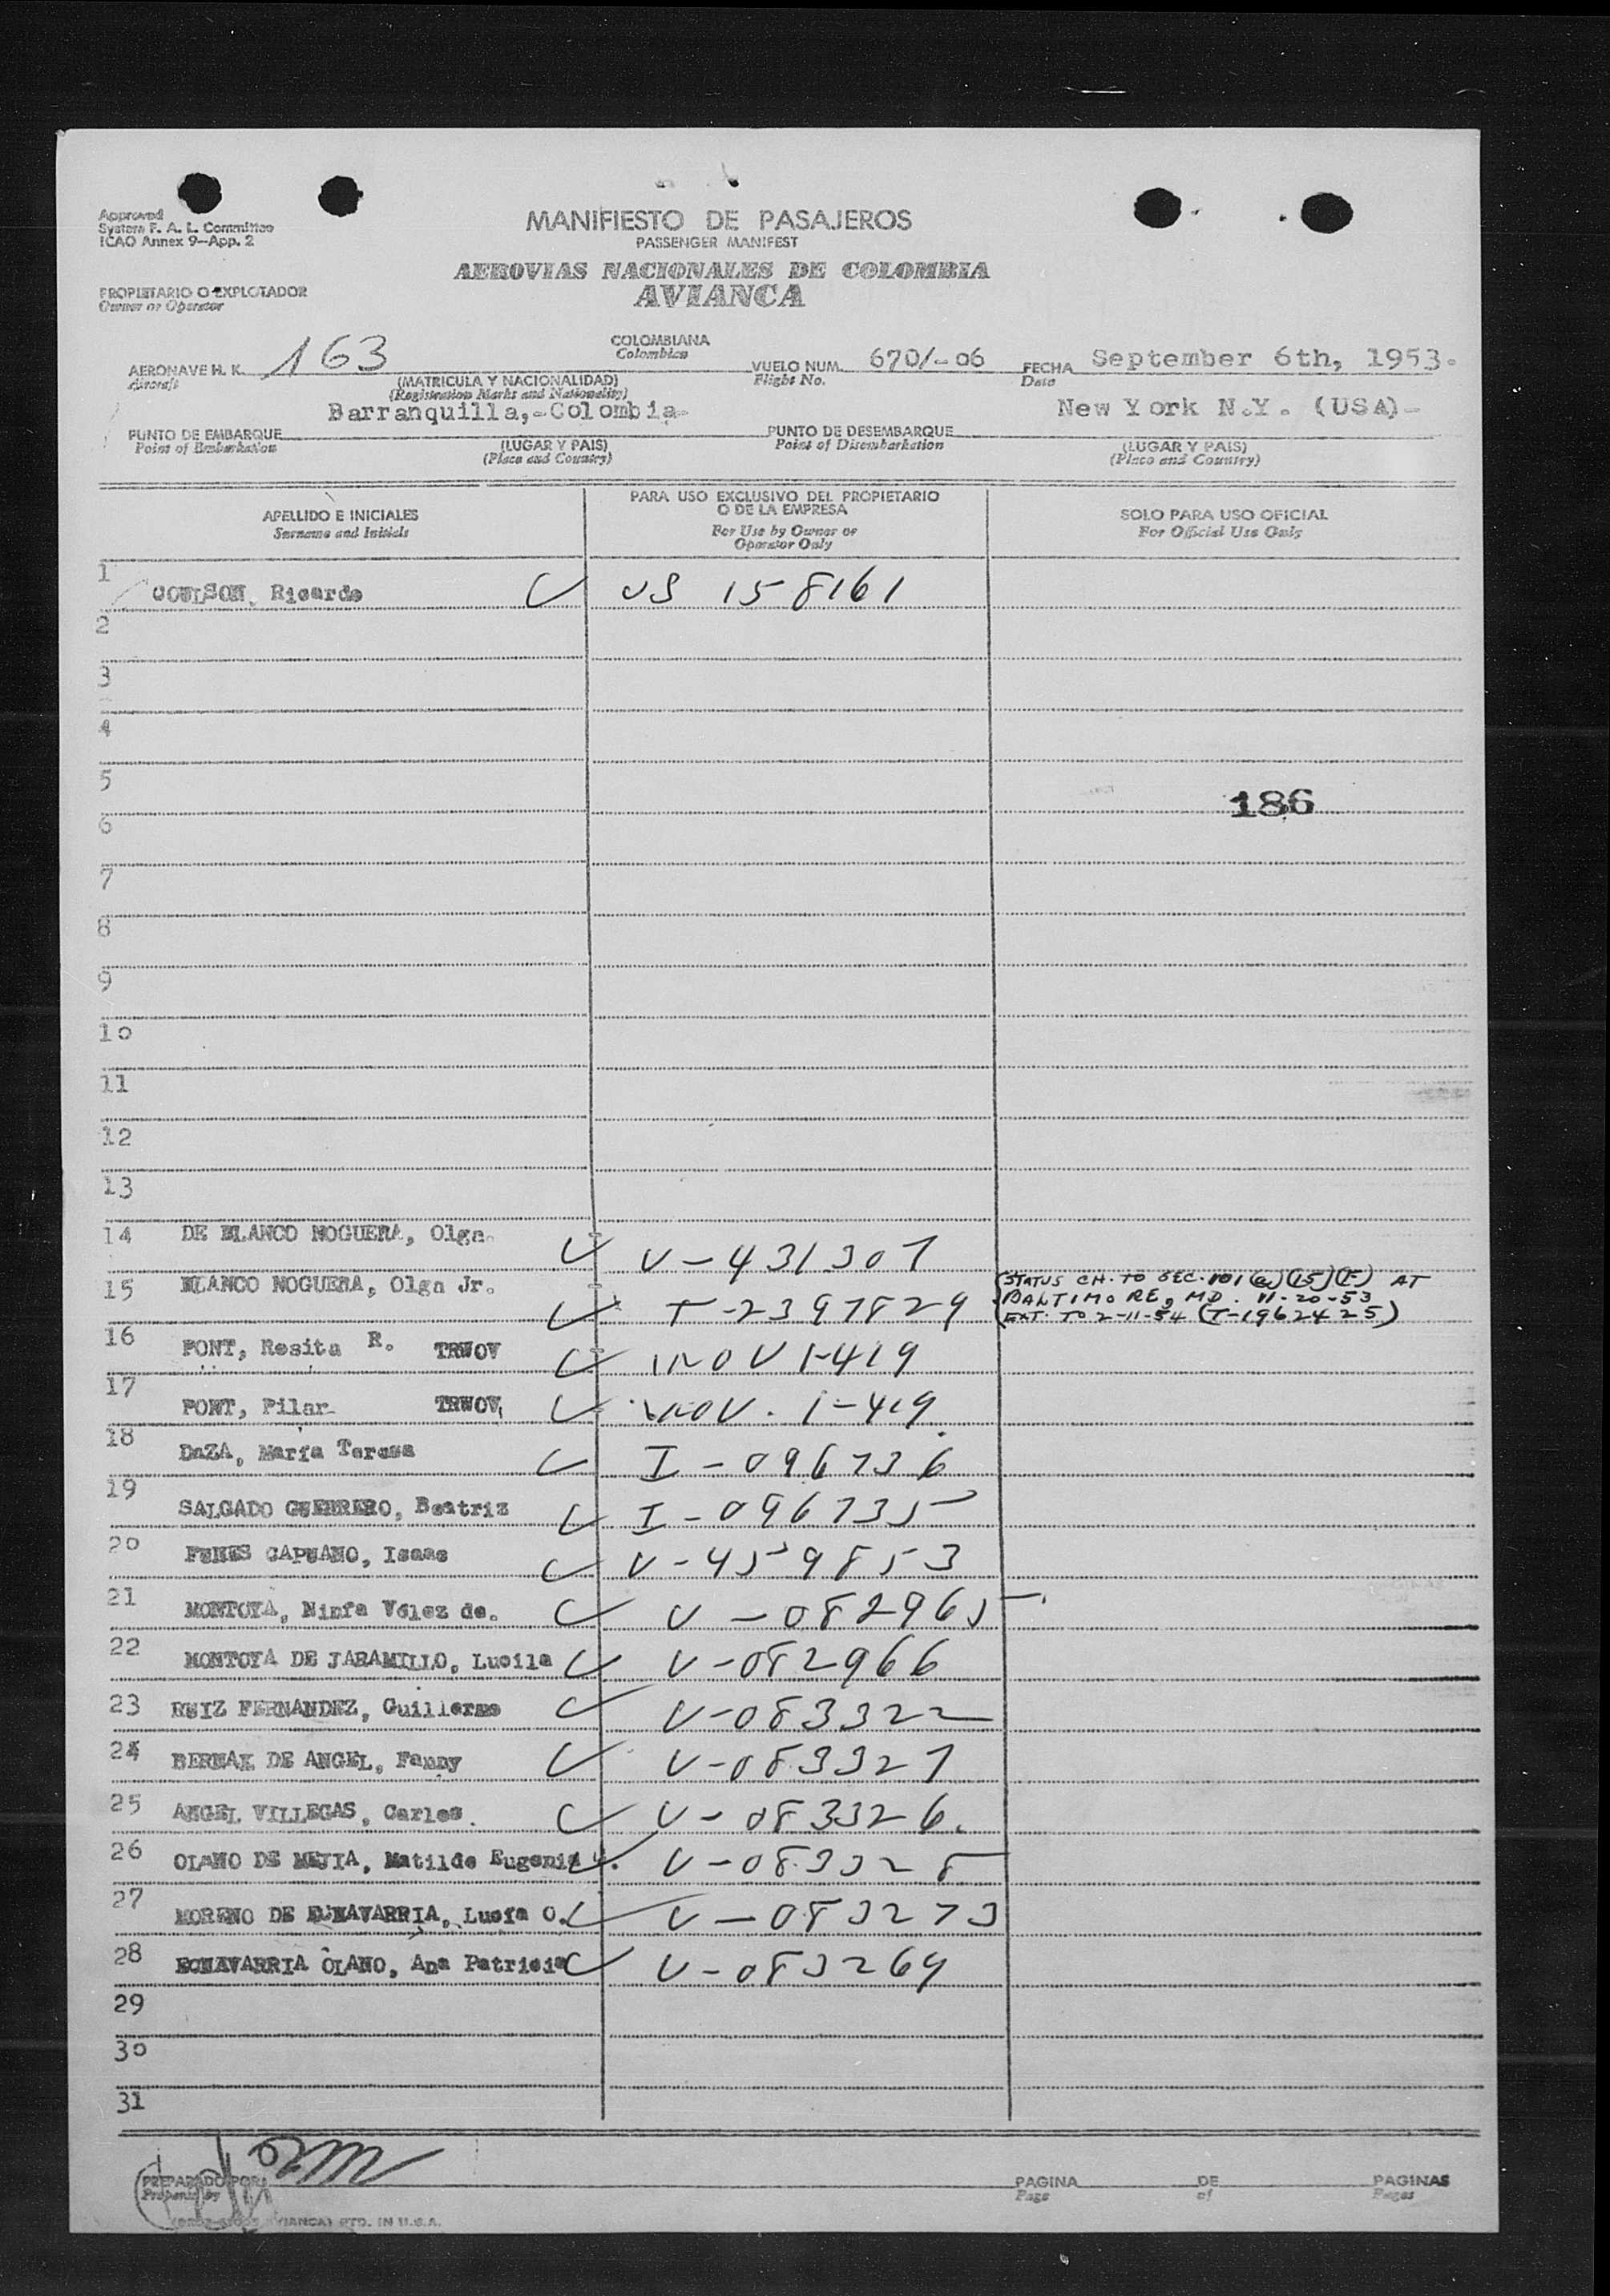 Approved
System F. A. L. Committee
ICAO Annex 9-App. 2
MANIFIESTO DE PASAJEROS
PASSENGER MANIFEST
AEROVIAS NACIONALES DE COLOMBIA
AVIANCA
PROPIETARIO O EXPLOTADOR
Owner or Operator
AERONAVE H. K. 163
Aircraft
(MATRICULA Y NACIONALIDAD)
(Registration Marks and Nationality)
COLOMBIANA
Colombian
VUELO NUM. 670/-06
Flight No.
FECHA September 6th, 1953.
Date
PUNTO DE EMBARQUE Barranquilla,-Colombia-
Point of Embarkation
(LUGAR Y PAIS)
(Place and Country)
PUNTO DE DESEMBARQUE New York N.Y. (USA)-
Point of Disembarkation
(LUGAR Y PAIS)
(Place and Country)
APELLIDO E INICIALES
Surname and Initials
PARA USO EXCLUSIVO DEL PROPIETARIO
O DE LA EMPRESA
For Use by Owner or
Operator Only
SOLO PARA USO OFICIAL
For Official Use Only
1 COULSON, Ricardo US 158161
2
3
4
5
186
6
7
8
9
10
11
12
13
14 DE BLANCO NOGUERA, Olga. V-431307
15 BLANCO NOGUERA, Olga Jr. T-2397829
(STATUS CH. TO SEC. 101(a)(15)(F) AT
BALTIMORE, MD. 11-20-53
(EXT. TO 2-11-54 (T-1962425)
16 PONT, Rosita R. TRWOV 1-419
17 PONT, Pilar TRWOV 1-419
18 DaZA, María Teresa I-096736
19 SALGADO GUERRERO, Beatriz I-096735
20 FUNES CAPUANO, Isaac V-459853
21 MONTOYA, Ninfa Vélez de. V-082965
22 MONTOYA DE JARAMILLO, Lucila V-082966
23 RUIZ FERNANDEZ, Guillermo V-083322
24 DE ANGEL, Fanny V-083327
25 ANGEL VILLEGAS, Carlos. V-083326.
26 OLANO DE MEJIA, Matilde Eugenia V-083328
27 MORENO DE ECHAVARRIA, Lucía O. V-083273
28 ECHAVARRIA OLANO, Ana Patricia V-083269
29
30
31
PREPARADO POR:
Prepared by
PAGINA
Page
DE
of
PAGINAS
Pages
PTD. IN U.S.A.